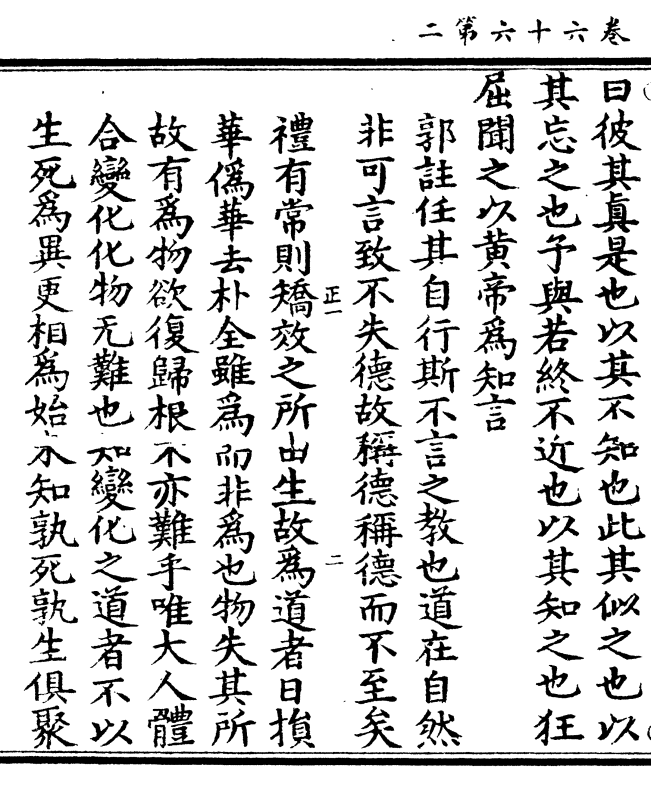 卷六十六第二
曰彼其眞是也以其不知也此其似之也以
其忘之也予與若終不近也以其知之也狂
屈聞之以黄帝爲知言
郭註任其自行斯不言之教也道在自然
非可言致不失德故稱德稱德而不至矣
正一
二
禮有常則矯效之所由生故爲道者日損
華僞華去朴全雖爲而非爲也物失其所
故有爲物欲復歸根不亦難乎唯大人體
合變化化物无難也知變化之道者不以
生死爲異更相爲始未知孰死孰生俱聚